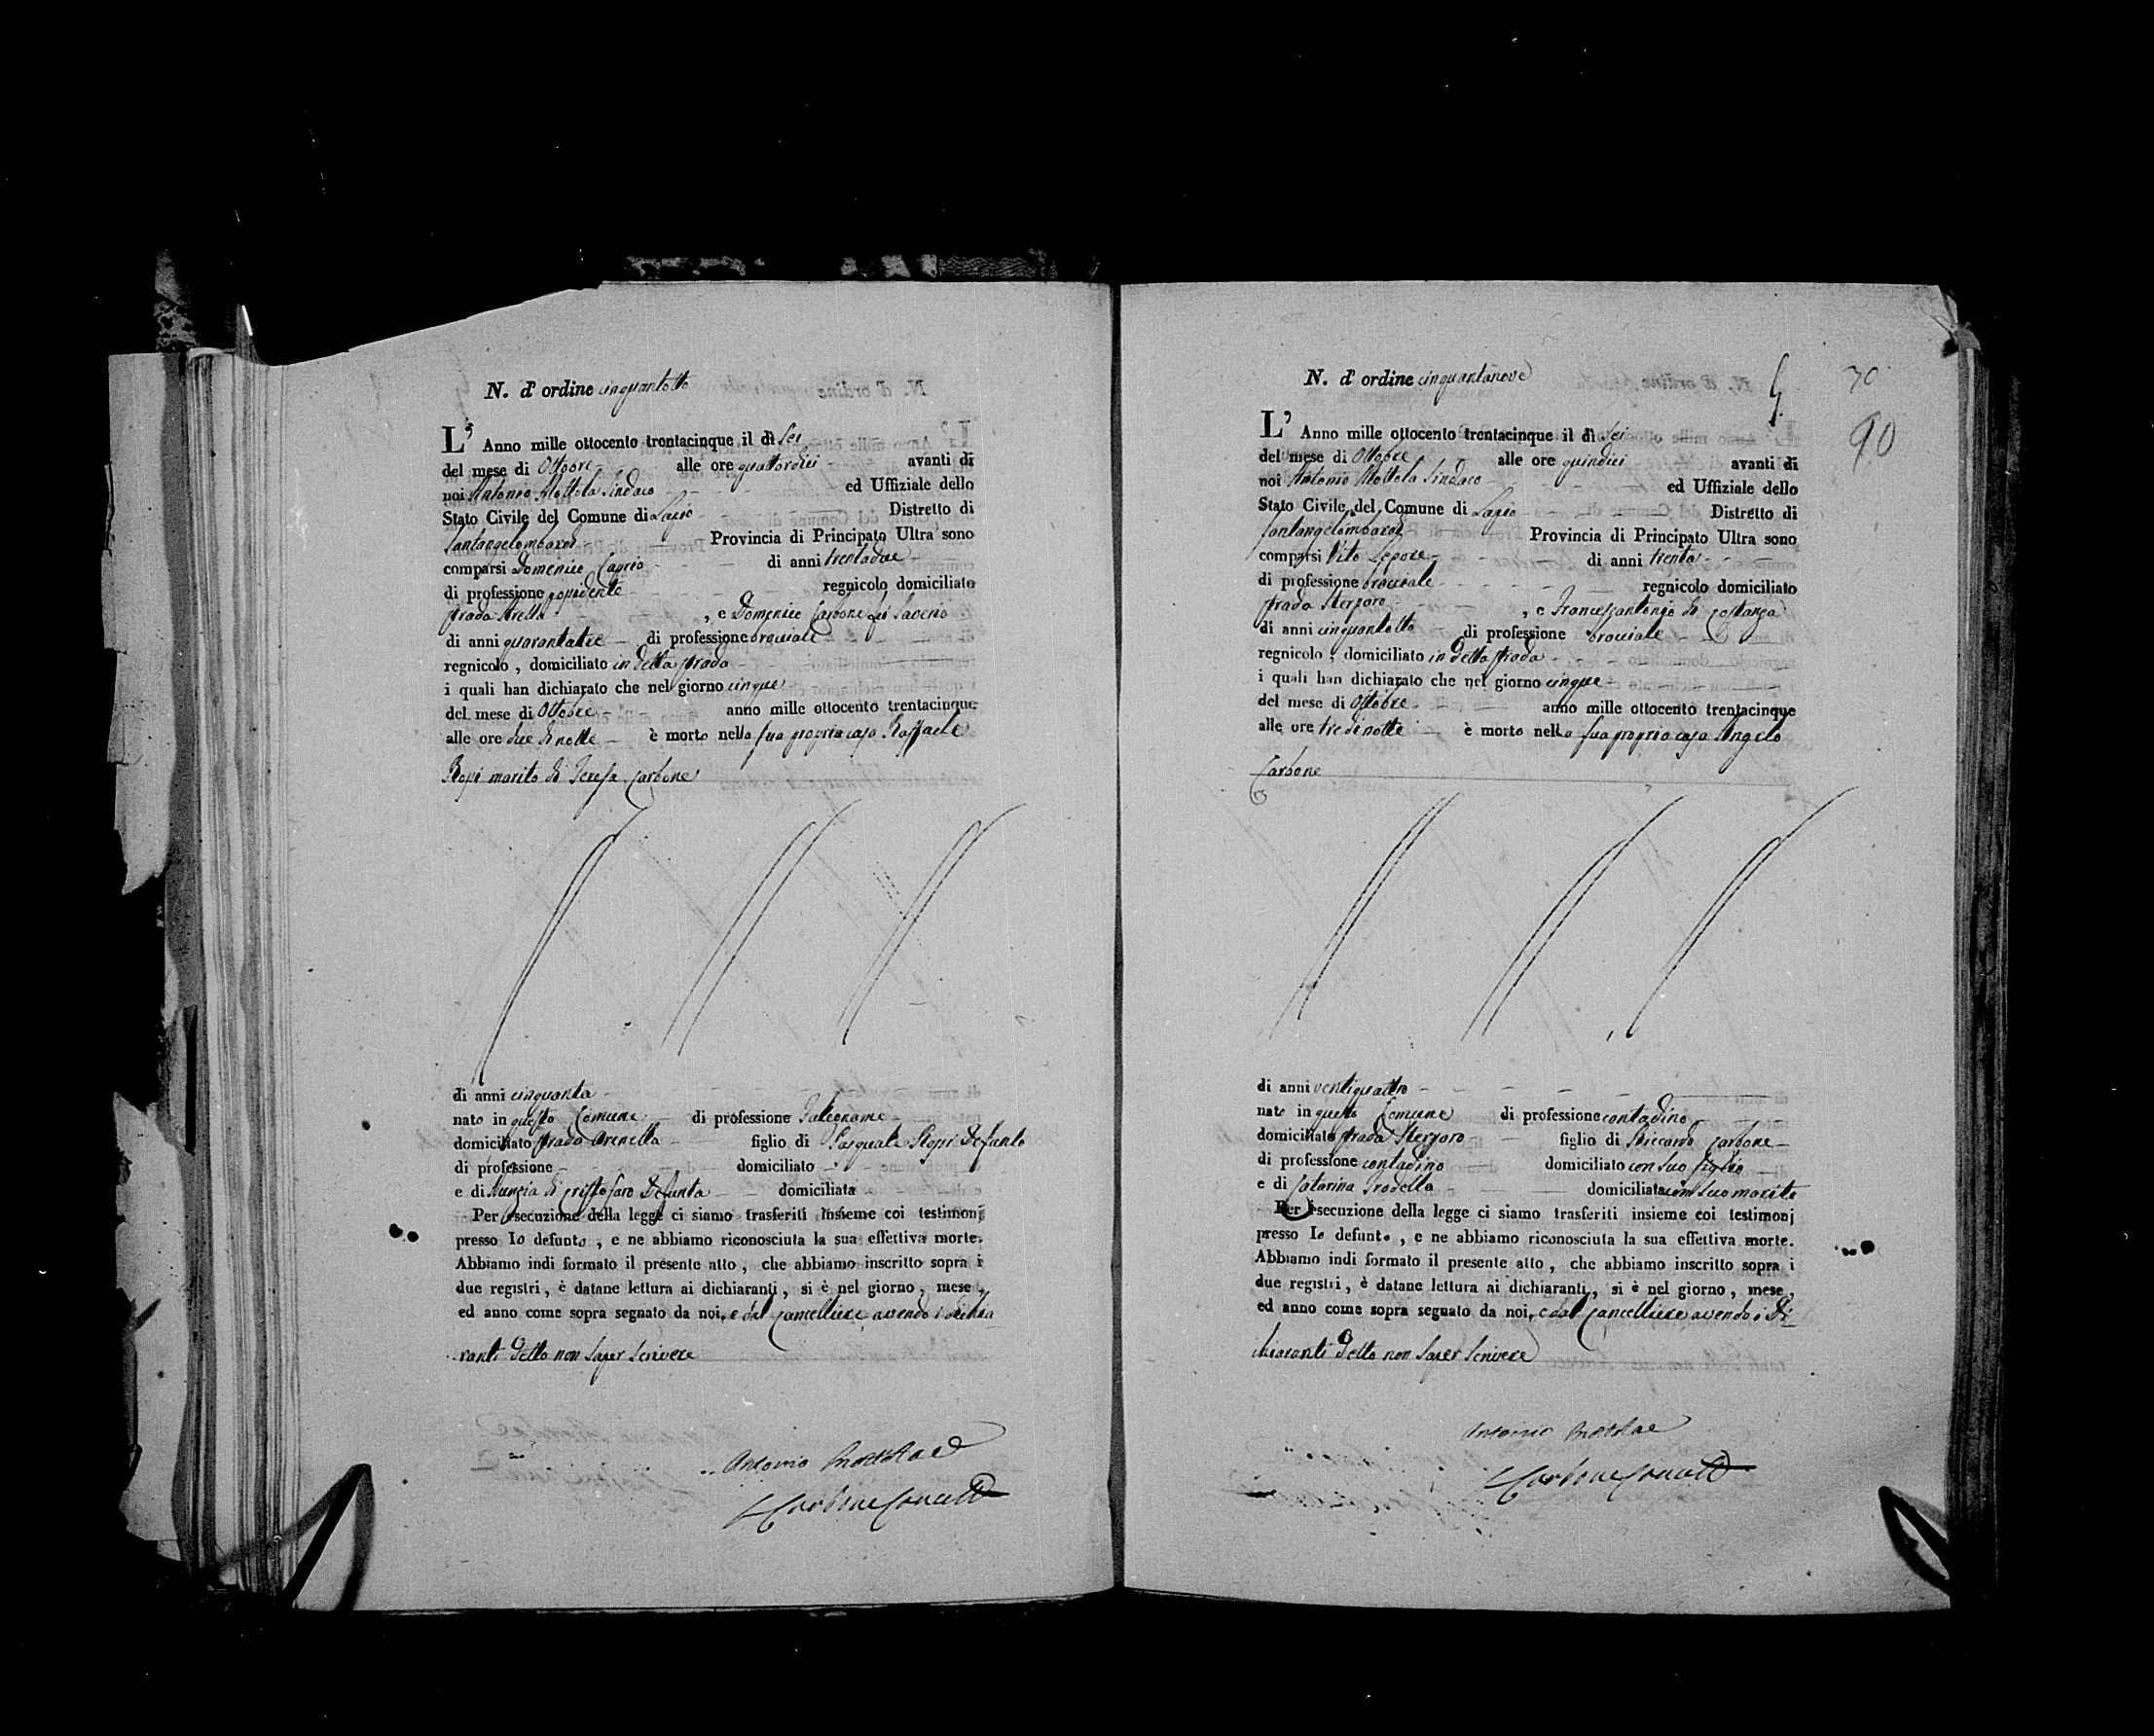 N. d' ordine cinquantotto
L' Anno mille ottocento trentacinque il dì sei
del mese di Ottobre alle ore quattordici avanti di
noi Antonio Mottola Sindaco ed Uffiziale dello
Stato Civile del Comune di Lapio Distretto di
Santangelombardi Provincia di Principato Ultra sono
comparsi Domenico Caprio di anni trentadue
di professione regnicolo domiciliato
strada , e Domenico Carbone di Saverio
di anni quarantatre di professione bracciale
regnicolo , domiciliato in detta strada
i quali han dichiarato che nel giorno cinque
del mese di Ottobre anno mille ottocento trentacinque
alle ore due di notte è morto nella sua propria casa Raffaele
marito di Teresa Carbone
di anni cinquanta
nato in questo Comune di professione Falegname
domiciliato strada Arenella figlio di Pasquale defunto
di professione domiciliato
e di Nunzia di Cristofaro defunta domiciliata
Per esecuzione della legge ci siamo trasferiti insieme coi testimonj
presso lo defunto , e ne abbiamo riconosciuta la sua effettiva morte.
Abbiamo indi formato il presente atto , che abbiamo inscritto sopra i
due registri , è datane lettura ai dichiaranti , si è nel giorno , mese ,
ed anno come sopra segnato da noi, e dal Cancelliere avendo i dichia
ranti detto non saper scrivere
Antonio Mottola
Carbone Cancell
N. d' ordine cinquantanove
70
90
L' Anno mille ottocento trentacinque il dì sei
del mese di Ottobre alle ore quindici avanti di
noi Antonio Mottola Sindaco ed Uffiziale dello
Stato Civile del Comune di Lapio Distretto di
Santangelombardi Provincia di Principato Ultra sono
comparsi Vito Lepore di anni trenta
di professione bracciale regnicolo domiciliato
strada Sterparo , e Francescantonio di Costanza
di anni cinquantotto di professione bracciale
regnicolo , domiciliato in detta strada
i quali han dichiarato che nel giorno cinque
del mese di Ottobre anno mille ottocento trentacinque
alle ore tre di notte è morto nella sua propria casa Angelo
Carbone
di anni ventiquattro
nato in questo Comune di professione contadino
domiciliato strada Sterparo figlio di Riccardo Carbone
di professione contadino domiciliato con suo figlio
e di Catarina domiciliata con suo marito
Per esecuzione della legge ci siamo trasferiti insieme coi testimonj
presso lo defunto , e ne abbiamo riconosciuta la sua effettiva morte.
Abbiamo indi formato il presente atto , che abbiamo inscritto sopra i
due registri , è datane lettura ai dichiaranti , si è nel giorno , mese ,
ed anno come sopra segnato da noi, e dal Cancelliere avendo i di
chiaranti detto non saper scrivere
Antonio Mottola
Carbone Cancell